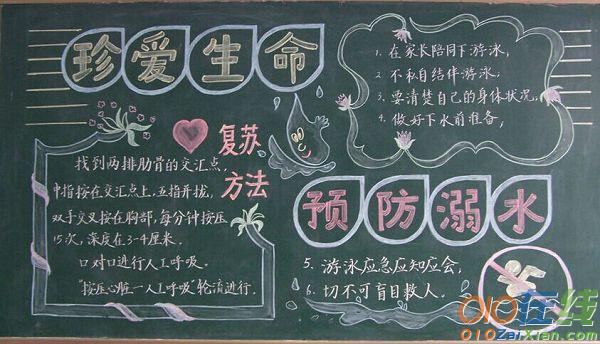 珍爱生命
1. 在家长陪同下游泳,
2. 不私自结伴游泳,
3. 要清楚自己的身体状况,
4. 做好下水前准备,
复苏
方法
找到两排肋骨的交汇点,
中指按在交汇点上,五指并拢,
双手交叉按在胸部,每分钟按压
15次,深度在3-4厘米。
口对口进行人工呼吸。
"按压心脏-人工呼吸"轮流进行.
预防溺水
5. 游泳应急应知应会,
6. 切不可盲目救人.
010在线
010ZaiXian.com